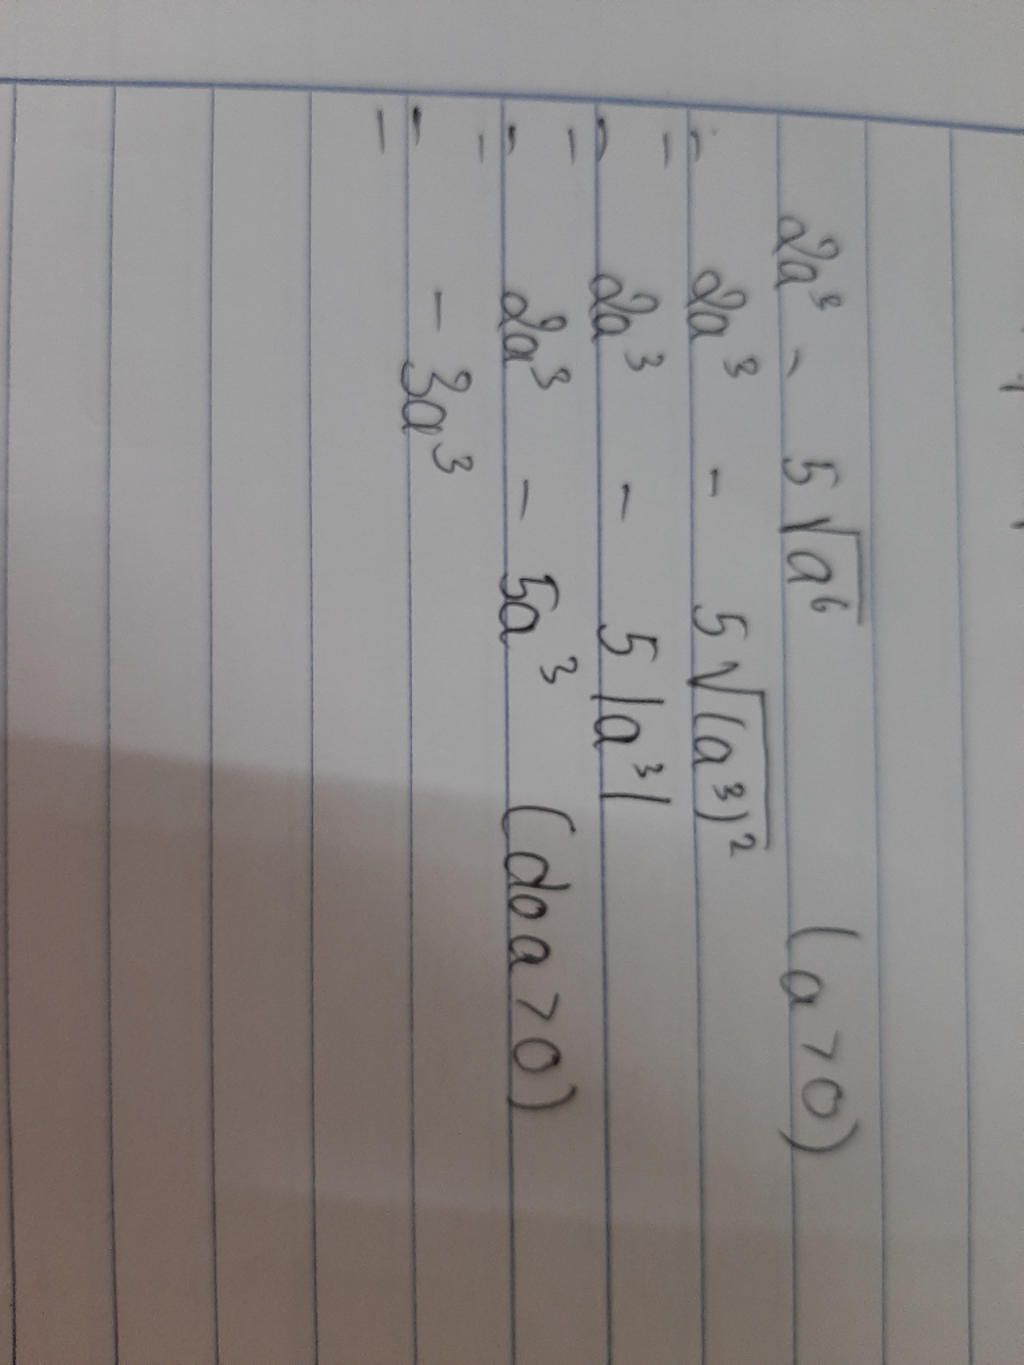 2a³ - 5√a⁶ (a > 0)
= 2a³ - 5√(a³)²
= 2a³ - 5|a³|
= 2a³ - 5a³ (do a > 0)
= - 3a³